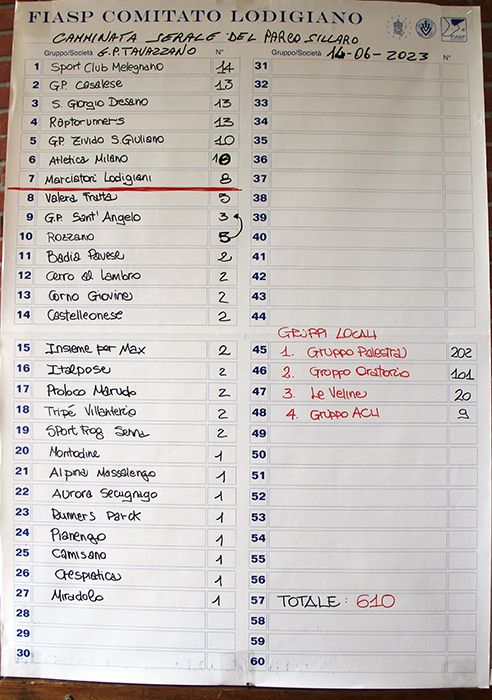 FIASP COMITATO LODIGIANO
FIASP
CAMMINATA SERALE DEL PARCO SILLARO
Gruppo/Società G.P. TAVAZZANO N°
Gruppo/Società 14-06-2023 N°
1 Sport Club Melegnano 14
2 G.P. Casalese 13
3 S. Giorgio Desano 13
4 Raptorunners 13
5 G.P. Zivido S. Giuliano 10
6 Atletica Milano 10
7 Marciatori Lodigiani 8
8 Valera Fratta 5
9 G.P. Sant'Angelo 3
10 Rozzano 5
11 Badia Pavese 2
12 Cerro al Lambro 2
13 Corno Giovine 2
14 Castelleonese 2
15 Insieme per Max 2
16 Italpose 2
17 Proloco Marudo 2
18 Tripé Villanterio 2
19 Sport Frog Senna 2
20 Montodine 1
21 Alpina Massalengo 1
22 Aurora Secugnago 1
23 Runners Parck 1
24 Pianengo 1
25 Camisano 1
26 Crespiatica 1
27 Miradolo 1
28
29
30
31
32
33
34
35
36
37
38
39
40
41
42
43
44
GRUPPI LOCALI
45 1. Gruppo Palestra 202
46 2. Gruppo Oratorio 101
47 3. Le Veline 20
48 4. Gruppo ACLI 9
49
50
51
52
53
54
55
56
57 TOTALE: 610
58
59
60